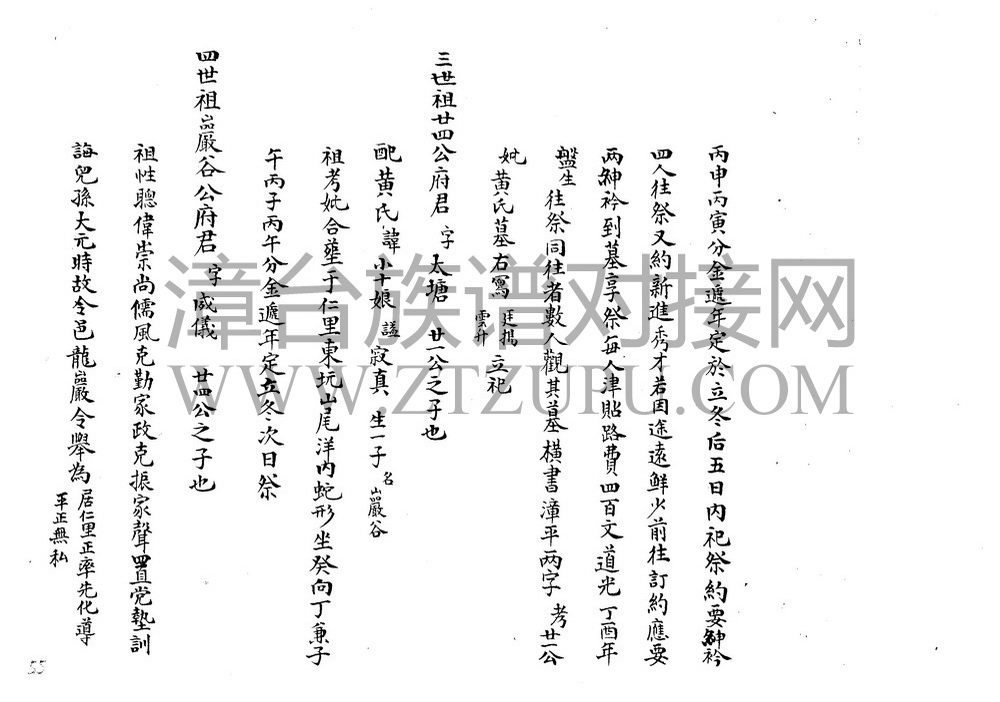 丙申丙寅分金遞年定於立冬后五日内祀祭約要紳衿
四人往祭又約新進秀才若因途遠鮮少前往訂約應要
兩紳衿到墓享祭每人津貼路費四百文道光丁酉年
盤生往祭同往者數人觀其墓橫書漳平两字 考廿一公
妣黄氏墓右寫廷揚雲升立祀
三世祖廿四公府君 字太塘 廿一公之子也
配黄氏諱小十娘 謚寂真 生一子名巖谷
祖考妣合塟于仁里東坑山尾洋内蛇形坐癸向丁兼子
午丙子丙午分金遞年定立冬次日祭
四世祖巖谷公府君 字成儀 廿四公之子也
祖性聰偉崇尚儒風克勤家政克振家聲置党塾訓
誨兒孫大元時故令邑龍巖令舉為居仁里正率先化導平正無私
55
漳台族谱对接网
WWW.ZTZUPU.COM